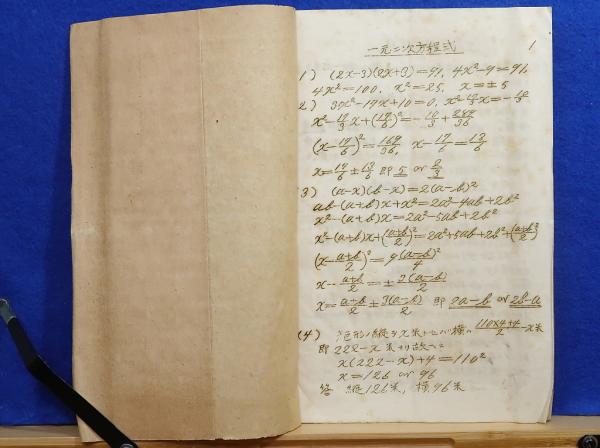 一元二次方程式 1
1) (2x-3)(2x+3)=91, 4x²-9=91,
4x²=100, x²=25, x=±5
2) 3x²-17x+10=0, x²-17/3x=-10/3
x²-17/3x+(17/6)²=-10/3+289/36
(x-17/6)²=169/36, x-17/6=13/6
x=17/6±13/6 即 5 or 2/3
(3) (a-x)(b-x)=2(a-b)²
ab-(a+b)x+x²=2a²-4ab+2b²
x²-(a+b)x=2a²-5ab+2b²
x²-(a+b)x+((a+b)/2)²=2a²+5ab+2b²+((a+b)/2)²
(x-(a+b)/2)²=9(a-b)²/4
x-(a+b)/2=±3(a-b)/2
x=(a+b)/2±3(a-b)/2 即 2a-b or 2b-a
(4) 矩形ノ縦ヲx米トセバ横ハ (110×4+4)/2-x米
即 222-x米ナリ故ニ
x(222-x)+4=110²
x=126 or 96
答 縦126米, 横96米